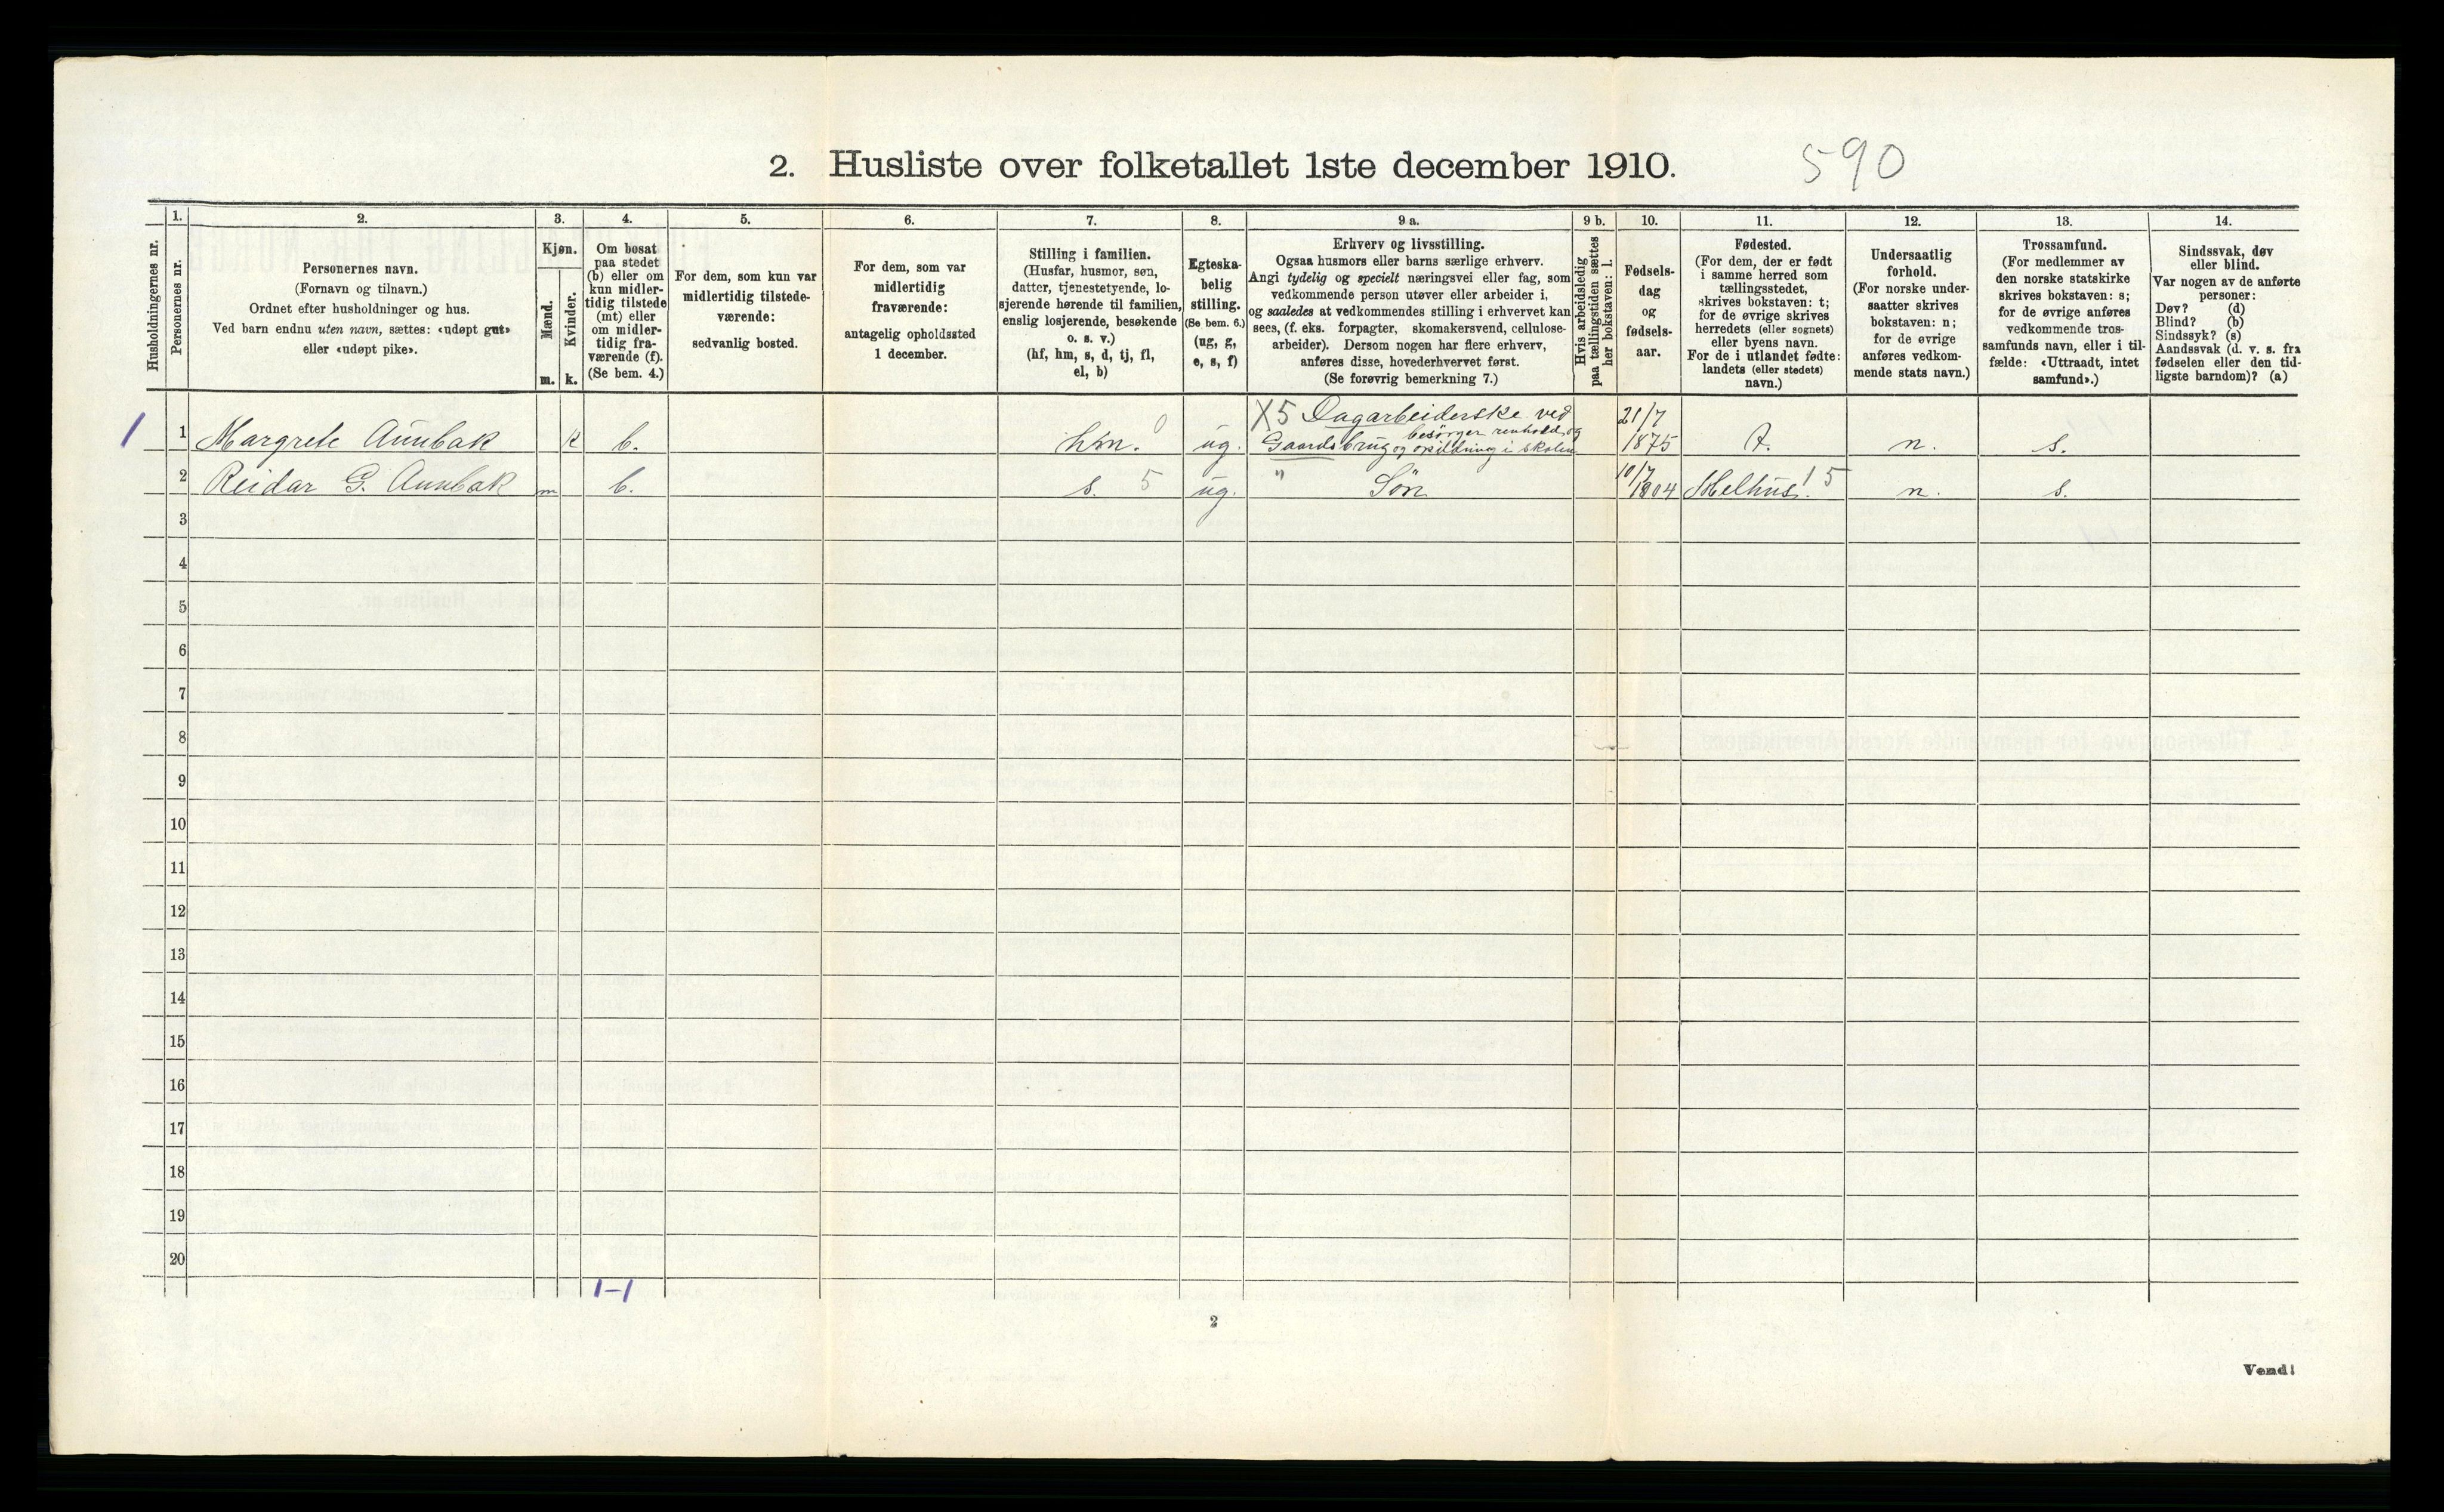 2. Husliste over folketallet 1ste december 1910.
590
Husholdningernes nr.
1.
Personernes nr.
2.
Personernes navn.
(Fornavn og tilnavn.)
Ordnet efter husholdninger og hus.
Ved barn endnu uten navn, sættes: «udøpt gut»
eller «udøpt pike».
3.
Kjøn.
Mænd.
Kvinder.
m.
k.
4.
Om bosat
paa stedet
(b) eller om
kun midler-
tidig tilstede
(mt) eller
om midler-
tidig fra-
værende (f).
(Se bem. 4.)
5.
For dem, som kun var
midlertidig tilstede-
værende:
sedvanlig bosted.
6.
For dem, som var
midlertidig
fraværende:
antagelig opholdssted
1 december.
7.
Stilling i familien.
(Husfar, husmor, søn,
datter, tjenestetyende, lo-
sjerende hørende til familien,
enslig losjerende, besøkende
o. s. v.)
(hf, hm, s, d, tj, fl,
el, b)
8.
Egteska-
belig
stilling.
(Se bem. 6.)
(ug, g,
e, s, f)
9 a.
Erhverv og livsstilling.
Ogsaa husmors eller barns særlige erhverv.
Angi tydelig og specielt næringsvei eller fag, som
vedkommende person utøver eller arbeider i,
og saaledes at vedkommendes stilling i erhvervet kan
sees, (f. eks. forpagter, skomakersvend, cellulose-
arbeider). Dersom nogen har flere erhverv,
anføres disse, hovederhvervet først.
(Se forøvrig bemerkning 7.)
9 b.
Hvis arbeidsledig
paa tællingstiden sættes
her bokstaven: l.
10.
Fødsels-
dag
og
fødsels-
aar.
11.
Fødested.
(For dem, der er født
i samme herred som
tællingsstedet,
skrives bokstaven: t;
for de øvrige skrives
herredets (eller sognets)
eller byens navn.
For de i utlandet fødte:
landets (eller stedets)
navn.)
12.
Undersaatlig
forhold.
(For norske under-
saatter skrives
bokstaven: n;
for de øvrige
anføres vedkom-
mende stats navn.)
13.
Trossamfund.
(For medlemmer av
den norske statskirke
skrives bokstaven: s;
for de øvrige anføres
vedkommende tros-
samfunds navn, eller i til-
fælde: «Uttraadt, intet
samfund».)
14.
Sindssvak, døv
eller blind.
Var nogen av de anførte
personer:
Døv? (d)
Blind? (b)
Sindssyk? (s)
Aandssvak (d. v. s. fra
fødselen eller den tid-
ligste barndom)? (a)
1 1 Margrete Aunbak k b. hm. 0 ug. X5 Dagarbeiderske ved
Gaardsbrug besørger renhold og
og opildning i skolen 21/7
1875 t. n. s.
2 Reidar G. Aunbak m b. s. 5 ug. " Søn 10/7
1904 Melhus 15 n. s.
3
4
5
6
7
8
9
10
11
12
13
14
15
16
17
18
19
20
1-1
2
Vend!